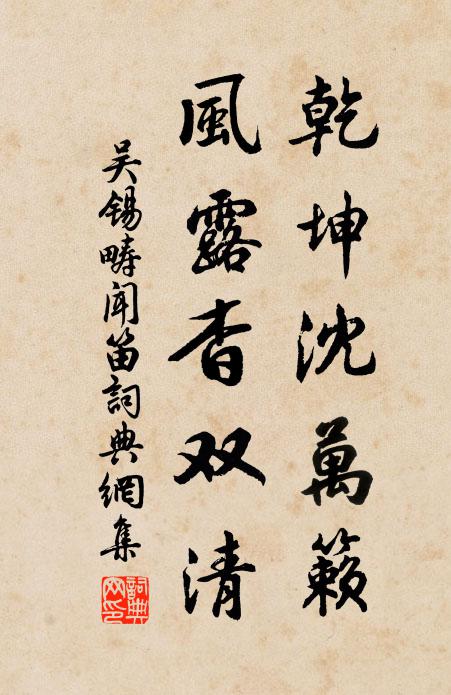 乾坤沈萬籟
風露杳双清
吴锡疇闻笛詞典網集
詞典网印